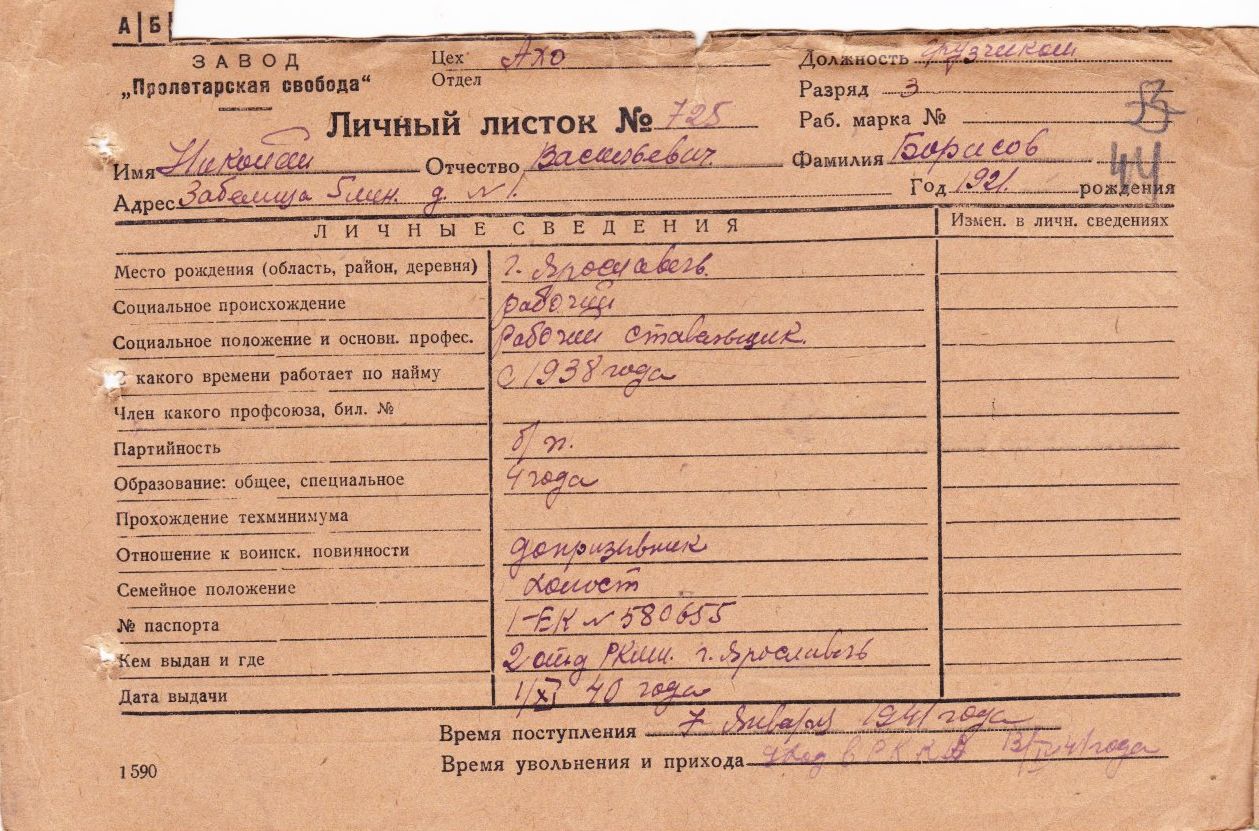 А|Б
ЗАВОД
„Пролетарская свобода“
Цех Ахо
Отдел
Должность грузчиком
Разряд 3
Раб. марка №
Личный листок № 725
44
Имя Николай Отчество Васильевич Фамилия Борисов
Адрес Забелица д. №1. Год 1921. рождения
ЛИЧНЫЕ СВЕДЕНИЯ Измен. в личн. сведениях
Место рождения (область, район, деревня) г. Ярославль.
Социальное происхождение рабочий
Социальное положение и основн. професс. рабочий ставельщик.
С какого времени работает по найму с 1938 года
Член какого профсоюза, бил. №
Партийность б/п.
Образование: общее, специальное 4 года
Прохождение техминимума
Отношение к воинск. повичности допризывник
Семейное положение холост
№ паспорта I-ЕК № 580655
Кем выдан и где 2 отд РКМ. г. Ярославль
Дата выдачи 1/XI 40 года
Время поступления 7 Января 1941 года
Время увольнения и прихода в РККА 13/IV 41 года
1590